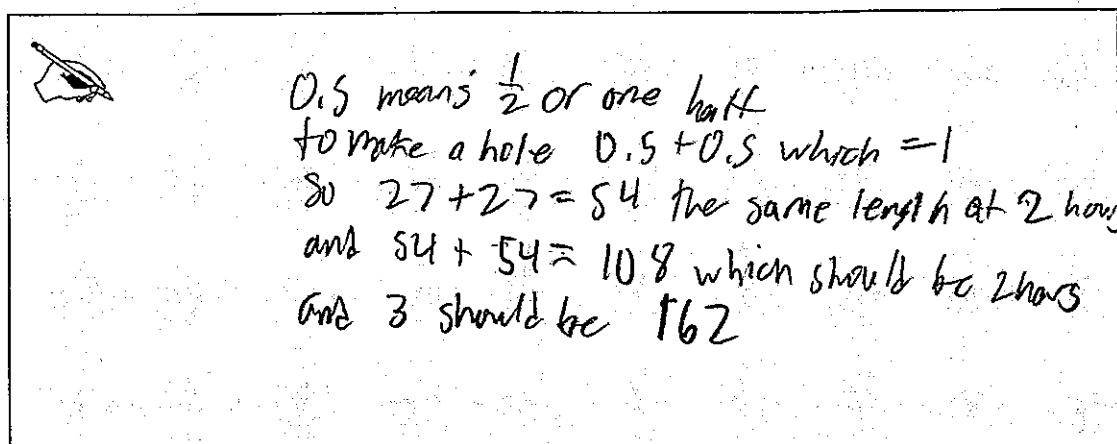 0.5 means 1/2 or one half
to make a hole 0.5 + 0.5 which = 1
so 27 + 27 = 54 the same length at 2 hours
and 54 + 54 = 108 which should be 2 hours
and 3 should be 162